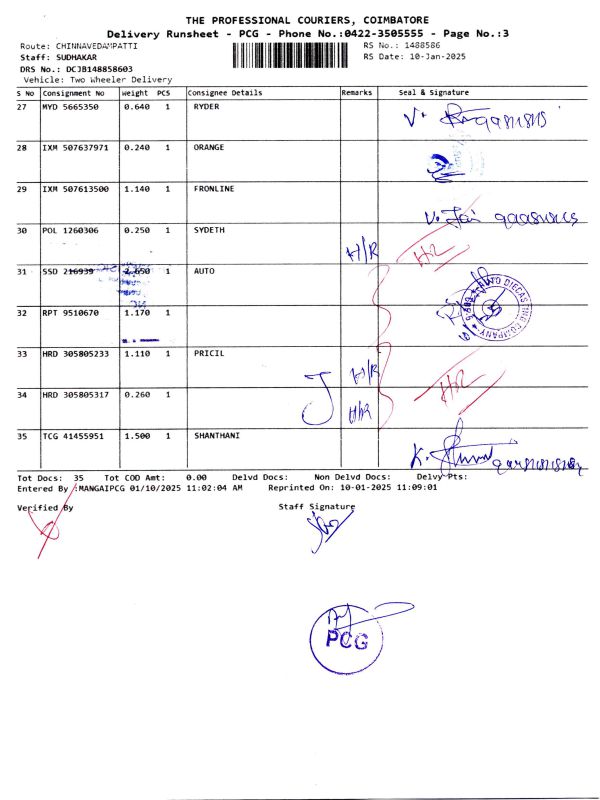 THE PROFESSIONAL COURIERS, COIMBATORE
Delivery Runsheet - PCG - Phone No.:0422-3505555 - Page No.:3
Route: CHINNAVEDAMPATTI RS No.: 1488586
Staff: SUDHAKAR RS Date: 10-Jan-2025
DRS No.: DCJB148858603
Vehicle: Two Wheeler Delivery
S No Consignment No Weight PCS Consignee Details Remarks Seal & Signature
27 MYD 5665350 0.640 1 RYDER
28 IXM 507637971 0.240 1 ORANGE
29 IXM 507613500 1.140 1 FRONLINE
30 POL 1260306 0.250 1 SYDETH H/R H/R
31 SSD 216939 2.650 1 AUTO
AUTO DIECASTING COMPANY
32 RPT 9510670 1.170 1
33 HRD 305805233 1.110 1 PRICIL H/R H/R
34 HRD 305805317 0.260 1 H/R
35 TCG 41455951 1.500 1 SHANTHANI
Tot Docs: 35 Tot COD Amt: 0.00 Delvd Docs: Non Delvd Docs: Delvy Pts:
Entered By :MANGAIPCG 01/10/2025 11:02:04 AM Reprinted On: 10-01-2025 11:09:01
Verified By Staff Signature
PCG